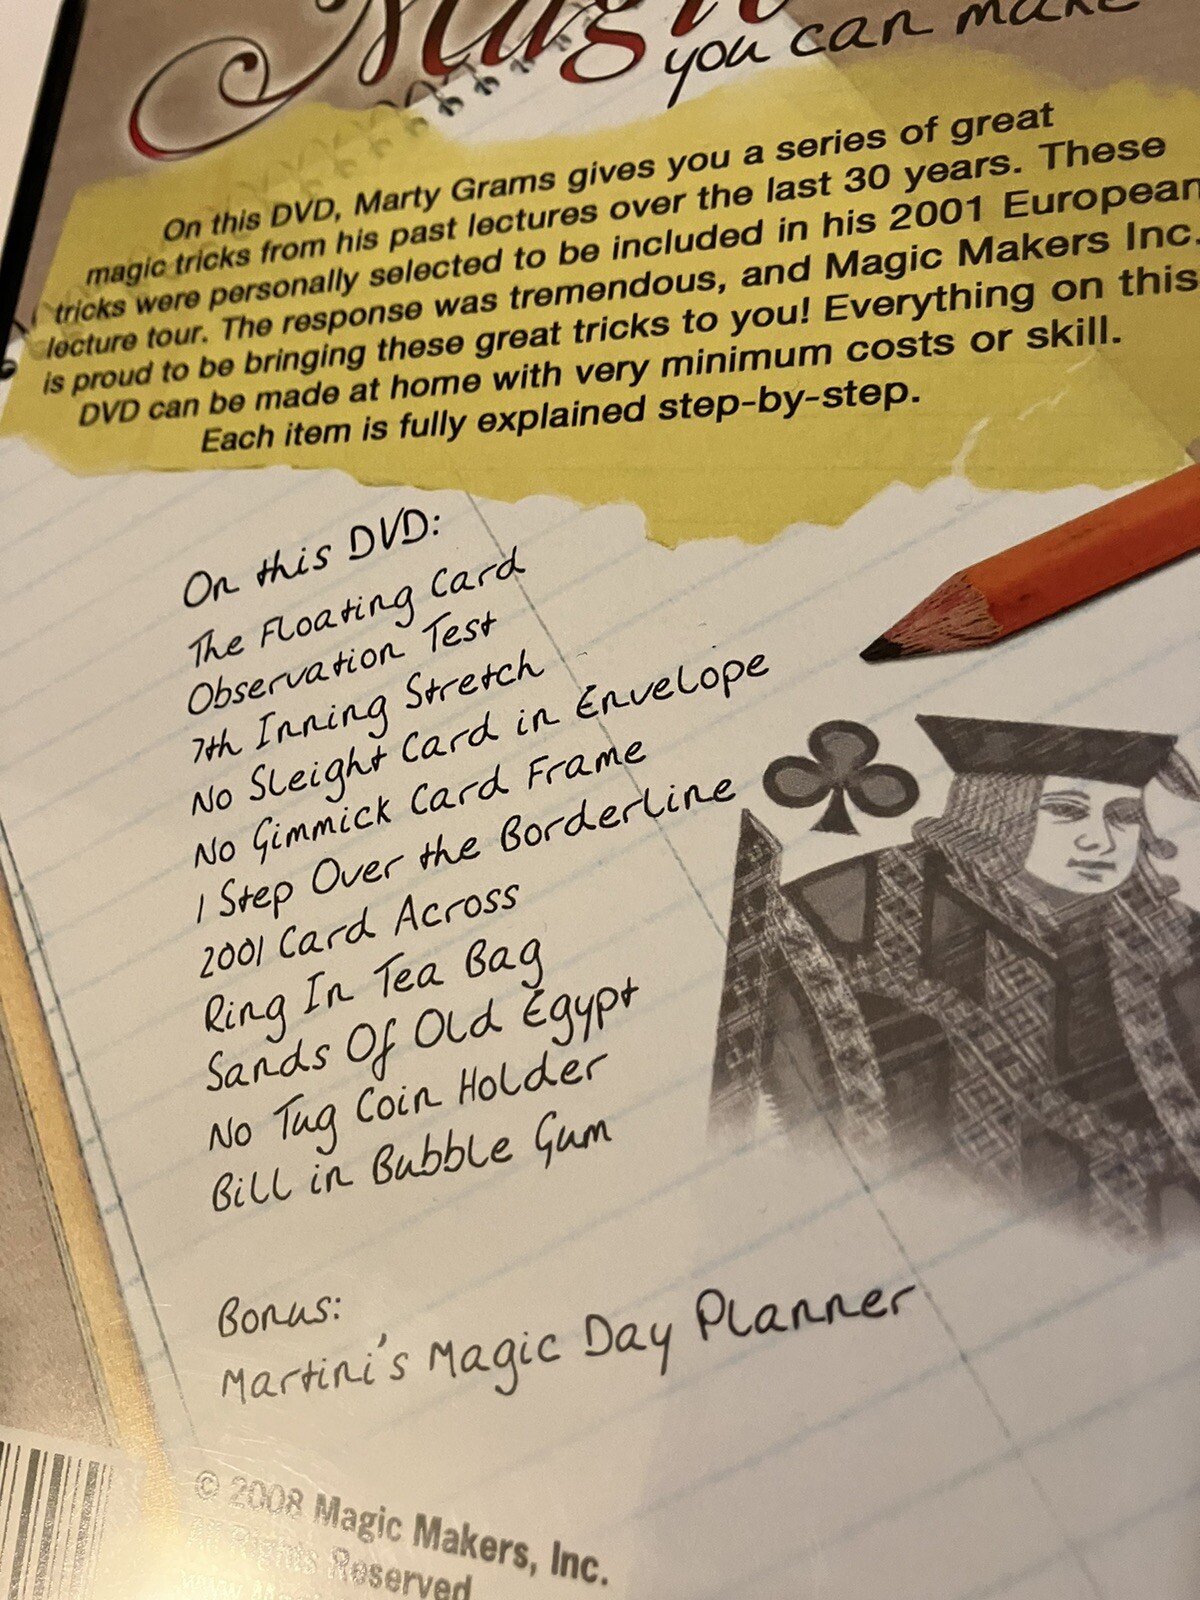 Magic
you can make
On this DVD, Marty Grams gives you a series of great
magic tricks from his past lectures over the last 30 years. These
tricks were personally selected to be included in his 2001 European
lecture tour. The response was tremendous, and Magic Makers Inc.
is proud to be bringing these great tricks to you! Everything on this
DVD can be made at home with very minimum costs or skill.
Each item is fully explained step-by-step.
On this DVD:
The Floating Card
Observation Test
7th Inning Stretch
No Sleight Card in Envelope
No Gimmick Card Frame
1 Step Over the Borderline
2001 Card Across
Ring In Tea Bag
Sands Of Old Egypt
No Tug Coin Holder
Bill in Bubble Gum
Bonus:
Martini's Magic Day Planner
© 2008 Magic Makers, Inc.
All Rights Reserved